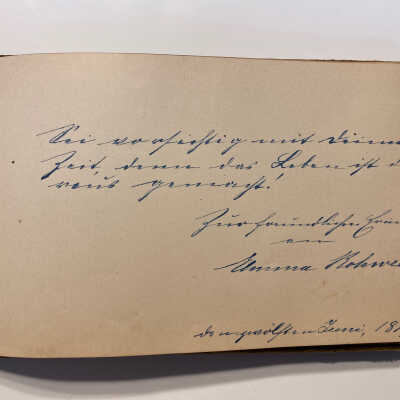 Sei vorsichtig mit deiner
Zeit, denn das Leben ist d
raus gemacht!
Zur freundlichen Erin
an
Emma
den zwölften Juni, 18